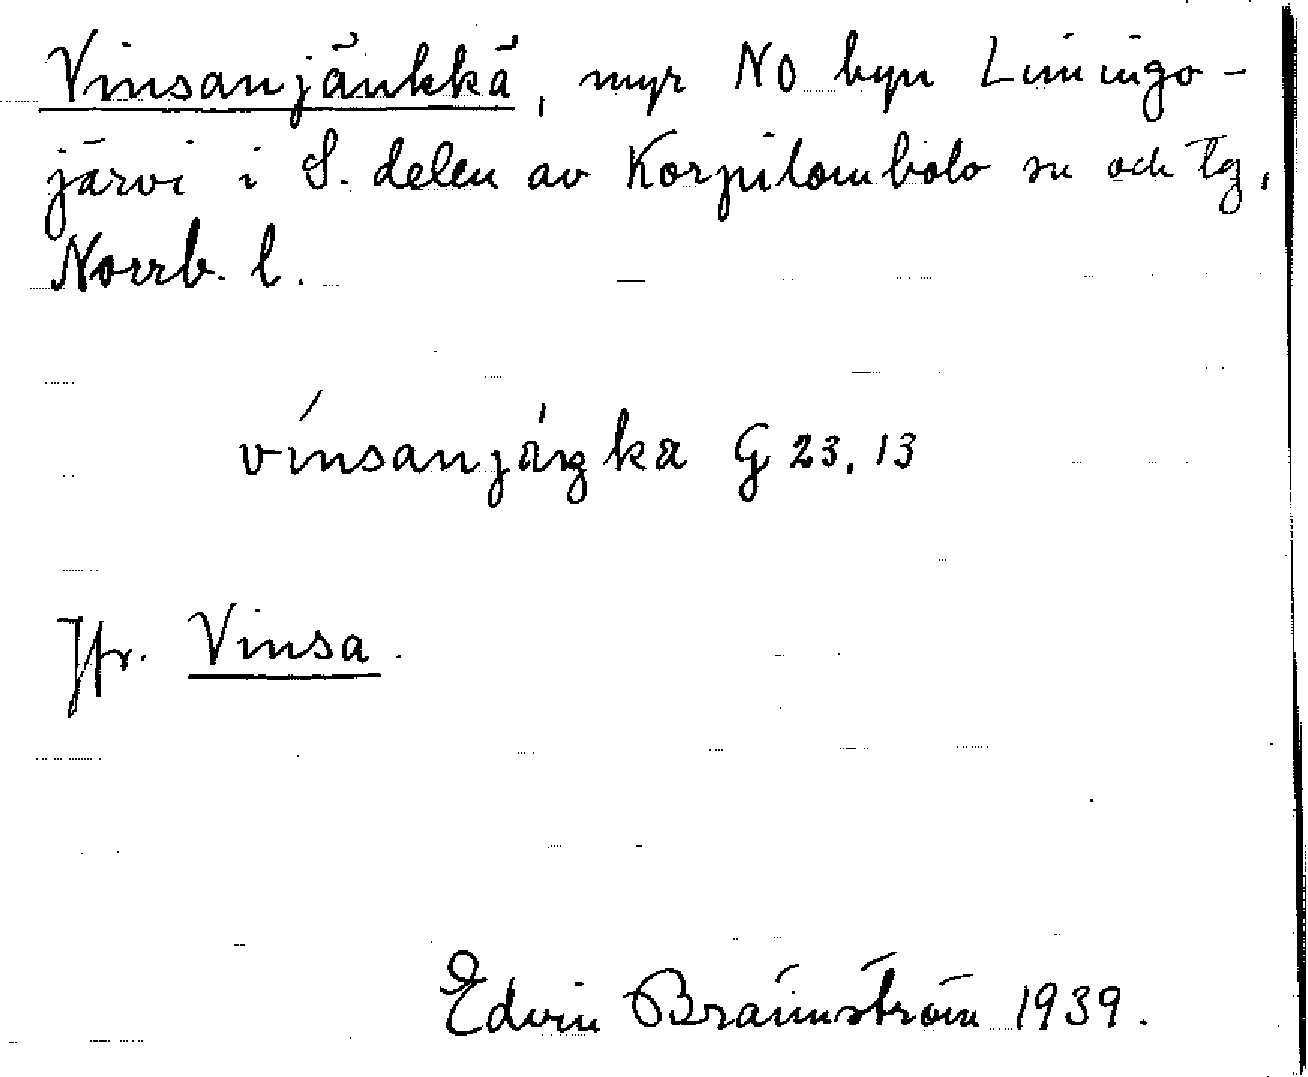 Vinsanjänkkä, myr NO byn Liviingo-
järvi i S. delen av Korpilombolo sn och tg,
Norrb. l.
vinsanjäŋka G 23, 13
Jfr. Vinsa.
Edvin Brännström 1939.